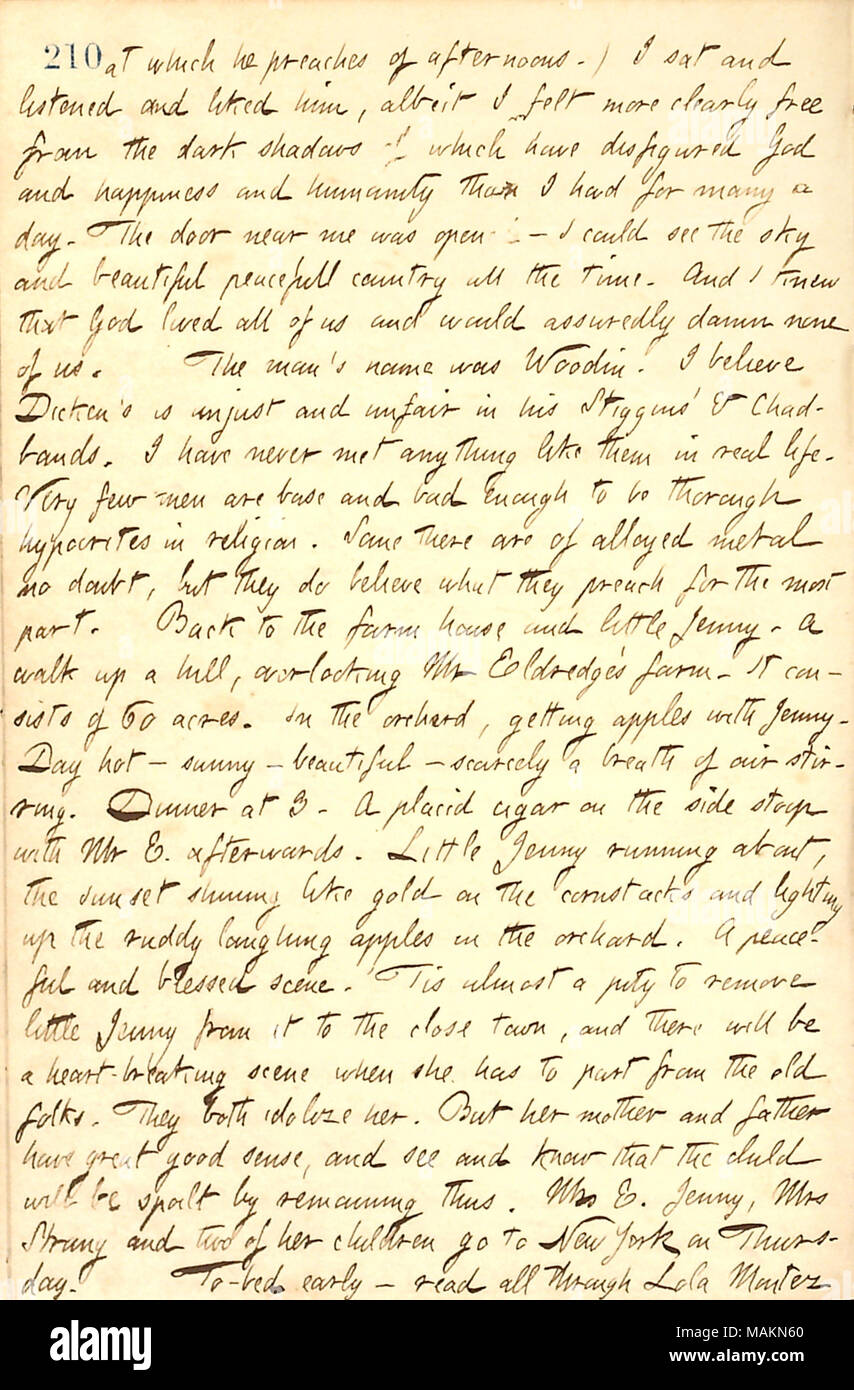 210 at which he preaches of afternoons.) I sat and
listened and liked him, albeit I felt more clearly free
from the dark shadows which have disfigured God
and happiness and humanity than I had for many a
day. The door near me was open — I could see the sky
and beautiful peacefull country all the time. And I knew
that God loved all of us and would assuredly damn none
of us. The man's name was Woodin. I believe
Dicken's is unjust and unfair in his Stiggins' & Chad-
bands. I have never met anything like them in real life.
Very few men are base and bad enough to be thorough
hypocrites in religion. Some there are of alloyed metal
no doubt, but they do believe what they preach for the most
part. Back to the farm house and little Jenny. A
walk up a hill, overlooking Mr Eldredge's farm. It con-
sists of 60 acres. In the orchard, getting apples with Jenny.
Day hot — sunny — beautiful — scarcely a breath of air stir-
ring. Dinner at 3. A placid cigar on the side stoop
with Mr E. afterwards. Little Jenny running about,
the sunset shining like gold on the cornstacks and lighting
up the ruddy laughing apples in the orchard. A peace-
ful and blessed scene. 'Tis almost a pity to remove
little Jenny from it to the close town, and there will be
a heart-breaking scene when she has to part from the old
folks. They both idolize her. But her mother and father
have great good sense, and see and know that the child
will be spoilt by remaining thus. Mrs E. Jenny, Mrs
Strong and two of her children go to New York on Thurs-
day. To-bed early — read all through Lola Montez
alamy
Image ID: MAKN60
www.alamy.com